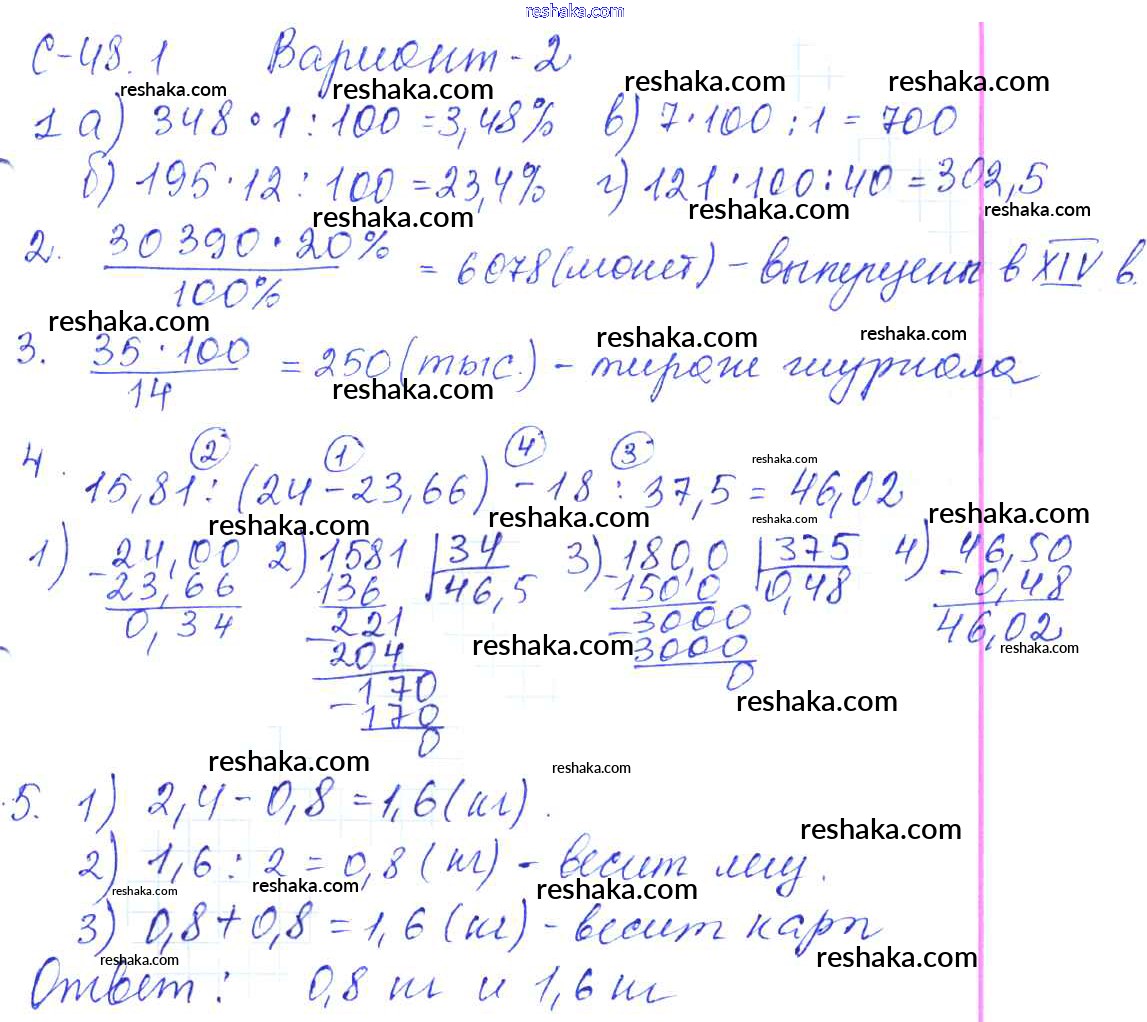 reshaka.com
С-48.1 Вариант-2
reshaka.com reshaka.com reshaka.com reshaka.com
1 а) 348·1:100=3,48% в) 7·100:1=700
б) 195·12:100=23,4% г) 121·100:40=302,5
reshaka.com reshaka.com reshaka.com
2. 30390·20% / 100% = 6078(монет) – выпущены в XIV в.
reshaka.com reshaka.com reshaka.com
3. 35·100 / 14 = 250(тыс.) – тираж журнала
reshaka.com
4. ② ① ④ ③
reshaka.com
15,81:(24-23,66)-18:37,5=46,02
reshaka.com reshaka.com reshaka.com reshaka.com
1) 24,00 2) 1581 | 34 3) 180,0 | 375 4) 46,50
-23,66 136 46,5 -150 0 0,48 -0,48
0,34 -221 -3000 46,02
204 3000
reshaka.com reshaka.com
-170 0
170
0
reshaka.com
reshaka.com reshaka.com
5. 1) 2,4-0,8=1,6(кг).
reshaka.com
2) 1,6:2=0,8(кг) - весит лещ.
reshaka.com reshaka.com reshaka.com
3) 0,8+0,8=1,6(кг) - весит карп
reshaka.com reshaka.com
Ответ: 0,8 кг и 1,6 кг